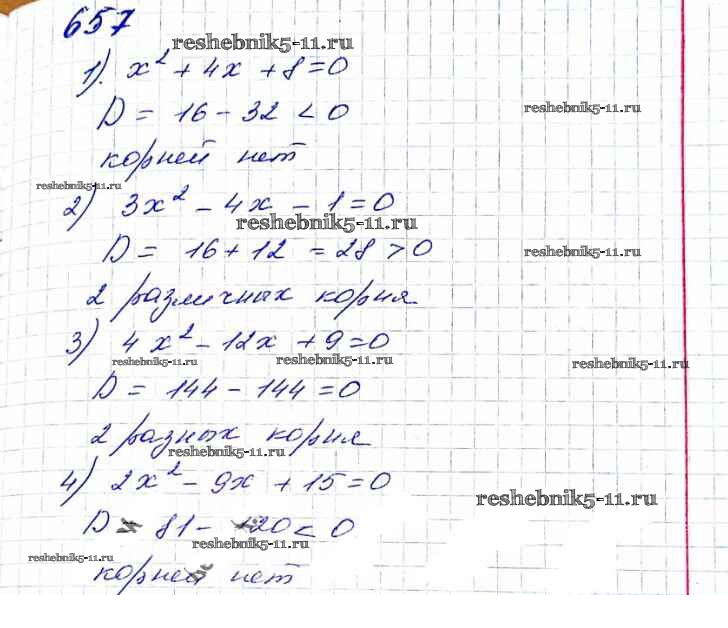 657
reshebnik5-11.ru
1). x² + 4x + 8 = 0
D = 16 - 32 < 0
reshebnik5-11.ru
корней нет
reshebnik5-11.ru
2) 3x² - 4x - 1 = 0
reshebnik5-11.ru
D = 16 + 12 = 28 > 0
reshebnik5-11.ru
2 различных корня
3) 4x² - 12x + 9 = 0
reshebnik5-11.ru
reshebnik5-11.ru
reshebnik5-11.ru
D = 144 - 144 = 0
2 разных корня
reshebnik5-11.ru
4) 2x² - 9x + 15 = 0
reshebnik5-11.ru
D = 81 - 120 < 0
reshebnik5-11.ru
reshebnik5-11.ru
корней нет